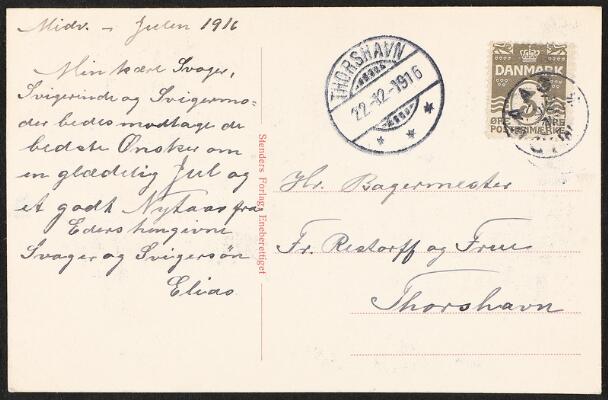 Midv. - Julen 1916
Min kære Svoger,
Svigerinde og Svigermo=
der bedes modtage de
bedste Ønsker om
en glædelig Jul og
et godt Nytaar fra
Eders hengivne
Svoger og Svigersøn
Elias
Stenders Forlag Eneberettiget
THORSHAVN
22-12-1916
DANMARK
3
ØRE ØRE
POSTFRIMÆRKE
Hr. Bagermester
Fr. Restorff og Frue
Thorshavn